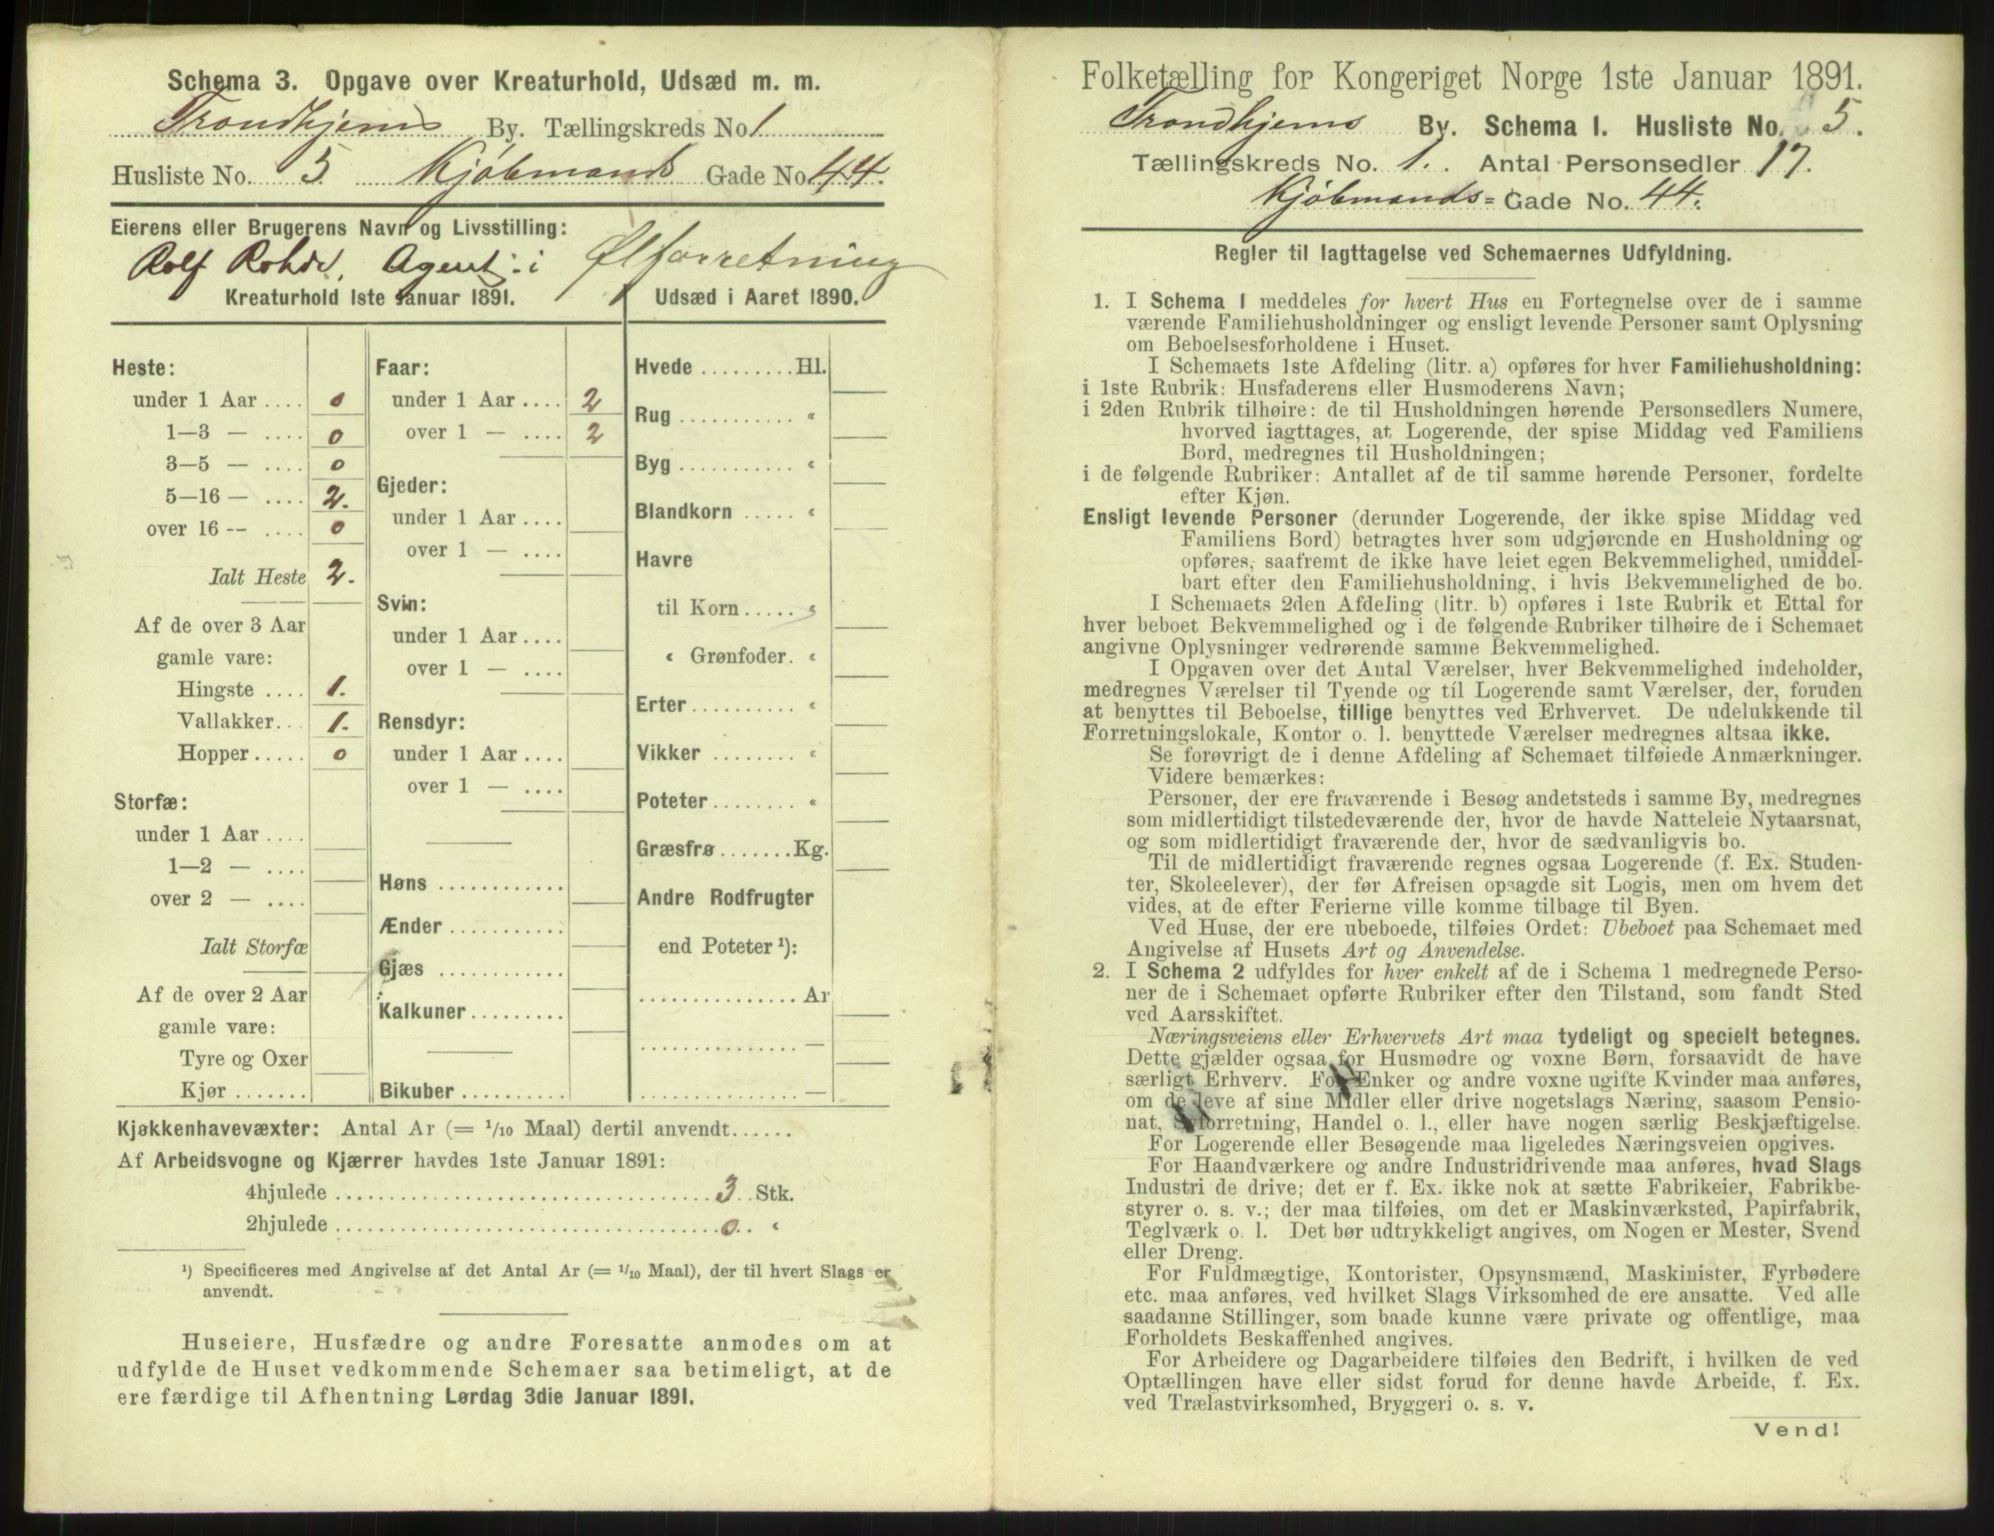 Schema 3. Opgave over Kreaturhold, Udsæd m. m.
Trondhjems By. Tællingskreds No 1
Husliste No. 5 Kjøbmands Gade No. 44.
Eierens eller Brugerens Navn og Livsstilling:
Rolf Rohde, Agent i Ølforretning
Kreaturhold 1ste Januar 1891.
Heste:
under 1 Aar .... 0
1—3 — .... 0
3—5 — .... 0
5—16 — .... 2.
over 16 -- .... 0
Ialt Heste 2.
Af de over 3 Aar
gamle vare:
Hingste .... 1.
Vallakker.. 1.
Hopper ..... 0
Storfæ:
under 1 Aar ....
1—2 — ....
over 2 — ....
Ialt Storfæ
Af de over 2 Aar
gamle vare:
Tyre og Oxer
Kjør .......
Faar:
under 1 Aar .... 2
over 1 — .... 2
Gjeder:
under 1 Aar ....
over 1 — ....
Svin:
under 1 Aar ....
over 1 — ....
Rensdyr:
under 1 Aar ....
over 1 — ....
Høns ............
Ænder ...........
Gjæs ............
Kalkuner .........
Bikuber ..........
Udsæd i Aaret 1890.
Hvede ......... Hl.
Rug ........... «
Byg ........... «
Blandkorn ..... «
Havre
til Korn ..... «
« Grønfoder. «
Erter .......... «
Vikker ........ «
Poteter ........ «
Græsfrø ....... Kg.
Andre Rodfrugter
end Poteter ¹):
............... Ar
............... —
............... —
Kjøkkenhavevæxter: Antal Ar (= 1/10 Maal) dertil anvendt......
Af Arbeidsvogne og Kjærrer havdes 1ste Januar 1891:
4hjulede ................................ 3 Stk.
2hjulede ................................ 0 «
¹) Specificeres med Angivelse af det Antal Ar (= 1/10 Maal), der til hvert Slags er
anvendt.
Huseiere, Husfædre og andre Foresatte anmodes om at
udfylde de Huset vedkommende Schemaer saa betimeligt, at de
ere færdige til Afhentning Lørdag 3die Januar 1891.
Folketælling for Kongeriget Norge 1ste Januar 1891.
Trondhjems By. Schema 1. Husliste No. 5.
Tællingskreds No. 1. Antal Personsedler 17.
Kjøbmands= Gade No. 44.
Regler til Iagttagelse ved Schemaernes Udfyldning.
1. I Schema 1 meddeles for hvert Hus en Fortegnelse over de i samme
værende Familiehusholdninger og ensligt levende Personer samt Oplysning
om Beboelsesforholdene i Huset.
I Schemaets 1ste Afdeling (litr. a) opføres for hver Familiehusholdning:
i 1ste Rubrik: Husfaderens eller Husmoderens Navn;
i 2den Rubrik tilhøire: de til Husholdningen hørende Personsedlers Numere,
hvorved iagttages, at Logerende, der spise Middag ved Familiens
Bord, medregnes til Husholdningen;
i de følgende Rubriker: Antallet af de til samme hørende Personer, fordelte
efter Kjøn.
Ensligt levende Personer (derunder Logerende, der ikke spise Middag ved
Familiens Bord) betragtes hver som udgjørende en Husholdning og
opføres, saafremt de ikke have leiet egen Bekvemmelighed, umiddel-
bart efter den Familiehusholdning, i hvis Bekvemmelighed de bo.
I Schemaets 2den Afdeling (litr. b) opføres i 1ste Rubrik et Ettal for
hver beboet Bekvemmelighed og i de følgende Rubriker tilhøire de i Schemaet
angivne Oplysninger vedrørende samme Bekvemmelighed.
I Opgaven over det Antal Værelser, hver Bekvemmelighed indeholder,
medregnes Værelser til Tyende og til Logerende samt Værelser, der, foruden
at benyttes til Beboelse, tillige benyttes ved Erhvervet. De udelukkende til
Forretningslokale, Kontor o. l. benyttede Værelser medregnes altsaa ikke.
Se forøvrigt de i denne Afdeling af Schemaet tilføiede Anmærkninger.
Videre bemærkes:
Personer, der ere fraværende i Besøg andetsteds i samme By, medregnes
som midlertidigt tilstedeværende der, hvor de havde Natteleie Nytaarsnat,
og som midlertidigt fraværende der, hvor de sædvanligvis bo.
Til de midlertidigt fraværende regnes ogsaa Logerende (f. Ex. Studen-
ter, Skoleelever), der før Afreisen opsagde sit Logis, men om hvem det
vides, at de efter Ferierne ville komme tilbage til Byen.
Ved Huse, der ere ubeboede, tilføies Ordet: Ubeboet paa Schemaet med
Angivelse af Husets Art og Anvendelse.
2. I Schema 2 udfyldes for hver enkelt af de i Schema 1 medregnede Perso-
ner de i Schemaet opførte Rubriker efter den Tilstand, som fandt Sted
ved Aarsskiftet.
Næringsveiens eller Erhvervets Art maa tydeligt og specielt betegnes.
Dette gjælder ogsaa for Husmødre og voxne Børn, forsaavidt de have
særligt Erhverv. For Enker og andre voxne ugifte Kvinder maa anføres,
om de leve af sine Midler eller drive nogetslags Næring, saasom Pensio-
nat, Syforretning, Handel o. l., eller have nogen særlig Beskjæftigelse.
For Logerende eller Besøgende maa ligeledes Næringsveien opgives.
For Haandværkere og andre Industridrivende maa anføres, hvad Slags
Industri de drive; det er f. Ex. ikke nok at sætte Fabrikeier, Fabrikbe-
styrer o. s. v.; der maa tilføies, om det er Maskinværksted, Papirfabrik,
Teglværk o. l. Det bør udtrykkeligt angives, om Nogen er Mester, Svend
eller Dreng.
For Fuldmægtige, Kontorister, Opsynsmænd, Maskinister, Fyrbødere
etc. maa anføres, ved hvilket Slags Virksomhed de ere ansatte. Ved alle
saadanne Stillinger, som baade kunne være private og offentlige, maa
Forholdets Beskaffenhed angives.
For Arbeidere og Dagarbeidere tilføies den Bedrift, i hvilken de ved
Optællingen have eller sidst forud for denne havde Arbeide, f. Ex.
ved Trælastvirksomhed, Bryggeri o. s. v.
Vend!